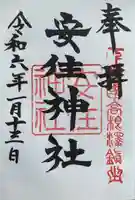 奉拝
安住神社
令和六年一月十三日
安住
神社